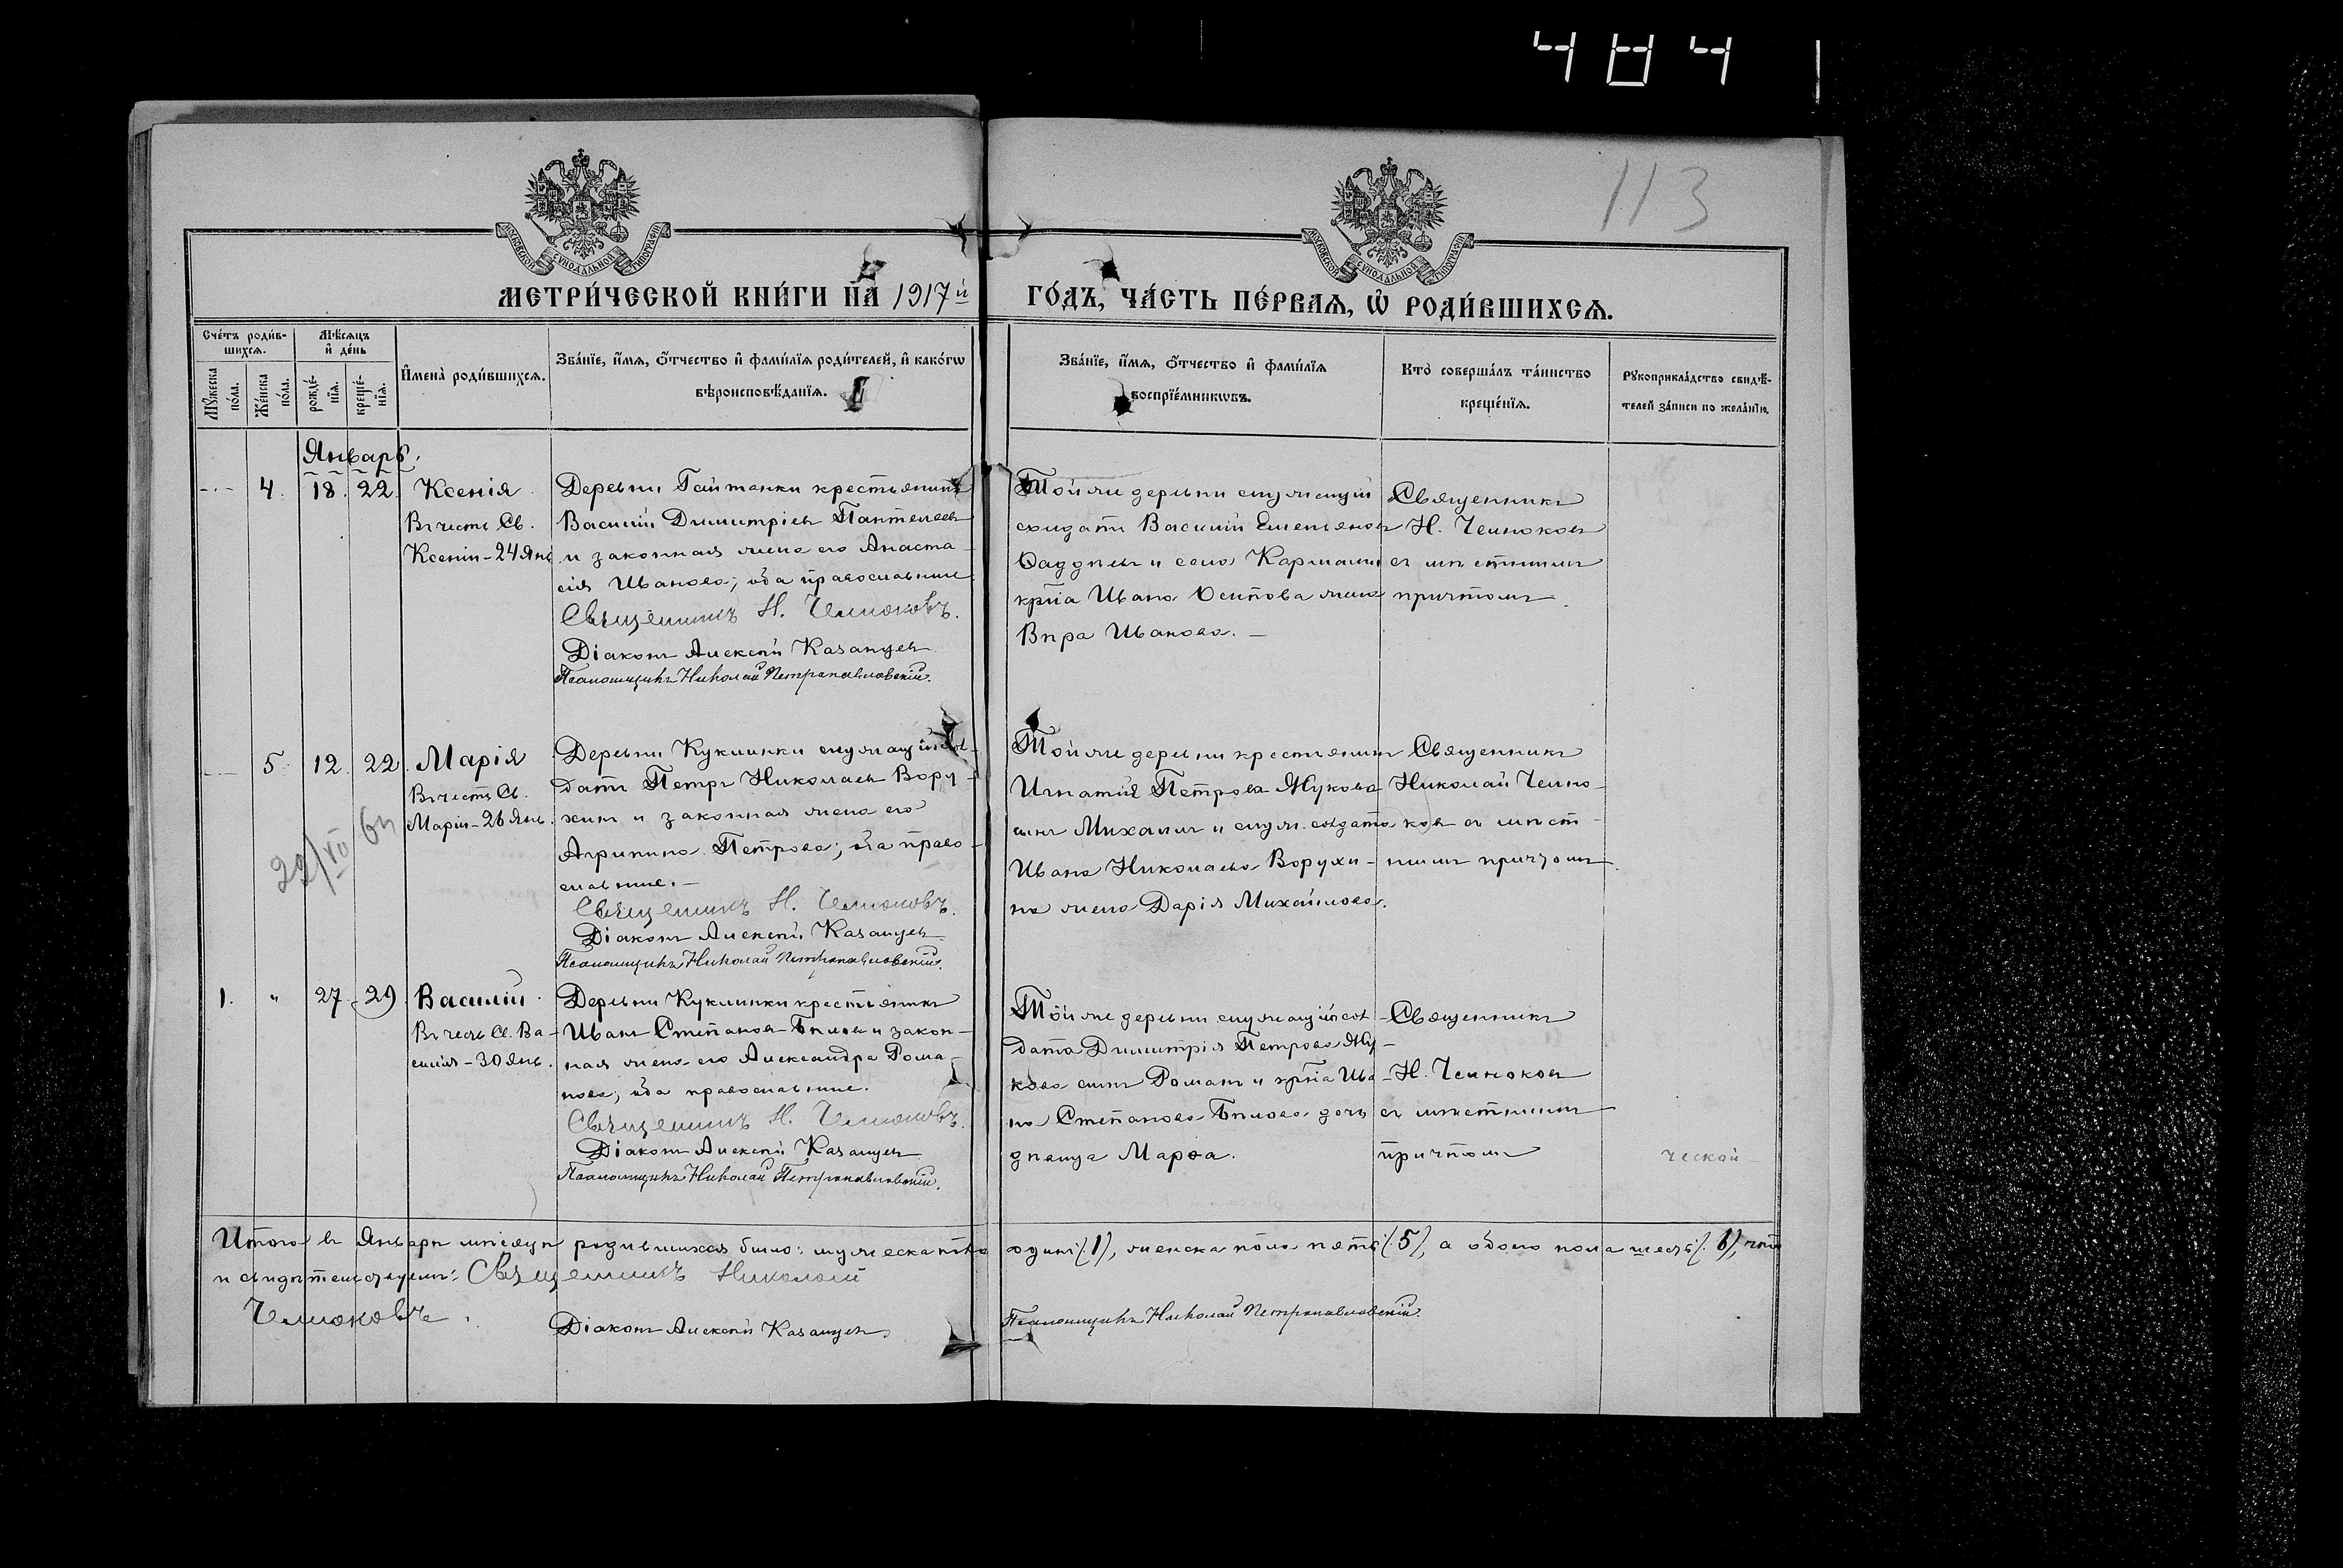 484
113
МОСКОВСКОЙ СУНОДАЛЬНОЙ ТИПОГРАФІИ
МОСКОВСКОЙ СУНОДАЛЬНОЙ ТИПОГРАФІИ
МЕТРИ́ЧЕСКОЙ КНИ́ГИ НА 1917й ГО́ДЪ, ЧА́СТЬ ПЕ́РВАЯ, Ѡ РОДИ́ВШИХСЯ.
Сче́тъ роди́в-
шихся.
Мѣ́сяцъ
и де́нь
Му́жеска
по́ла.
Же́нска
по́ла.
рожде́-
нїя.
креще́-
нїя.
И́мена̀ роди́вшихся.
Зва́нїе, и́мя, о́тчество и фами́лїя роди́телей, и како́гѡ
вѣроисповѣ́данїя.
Зва́нїе, и́мя, о́тчество и фами́лїя
воспрїе́мникѡвъ.
Кто̀ соверша́лъ та́инство
креще́нїя.
Рукоприкла́дство свидѣ́-
телей за́писи по жела́нїю.
Январь.
4. 18. 22. Ксенія
Въ честь Св.
Ксеніи - 24 Янв
Деревни Гайтанки крестьянинъ
Василій Димитріевъ Пантелеевъ
и законная жена его Анаста-
сія Иванова; оба православные
Священникъ Н. Челноковъ.
Діаконъ Алексѣй Казанцевъ
Псаломщикъ Николай Петропавловскій.
Той же деревни служащій
солдатъ Василій Емельяновъ
Ѳаддѣевъ и села
кр-на Ивана Осипова жена
Вѣра Иванова. —
Священникъ
Н. Челноковъ
съ мѣстнымъ
причтомъ
5. 12. 22. Марія
Въ честь Св.
Маріи - 26 Янв.
22/VII 64
Деревни Куклинки служащій сол-
датъ Петръ Николаевъ Вору-
хинъ и законная жена его
Агрипина Петрова; оба право-
славные. —
Священникъ Н. Челноковъ.
Діаконъ Алексѣй Казанцевъ
Псаломщикъ Николай Петропавловскій.
Той же деревни крестьянина
Игнатія Петрова Жукова
сынъ Михаилъ и служ. солдата
Ивана Николаева Ворухи-
на жена Дарія Михайлова.
Священникъ
Николай Челно-
ковъ съ мѣст-
нымъ причтомъ
1. " 27. 29. Василій
Въ честь Св. Ва-
силія - 30 Янв.
Деревни Куклинки крестьянинъ
Иванъ Степановъ Бѣловъ и закон-
ная жена его Александра Рома-
нова; оба православные.
Священникъ Н. Челноковъ.
Діаконъ Алексѣй Казанцевъ
Псаломщикъ Николай Петропавловскій.
Той же деревни служащій сол-
дата Димитрія Петрова Жу-
кова сынъ Романъ и кр-на Ива-
на Степанова Бѣлова дочь
дѣвица Марѳа.
Священникъ
Н. Челноковъ
съ мѣстнымъ
причтомъ
ческой
Итого въ Январѣ мѣсяцѣ родившихся было: мужеска пола одинъ (1), женска пола пять (5), а обоего пола шесть (6), что
и свидѣтельствуемъ: Священникъ Николай
Челноковъ.
Діаконъ Алексѣй Казанцевъ
Псаломщикъ Николай Петропавловскій.